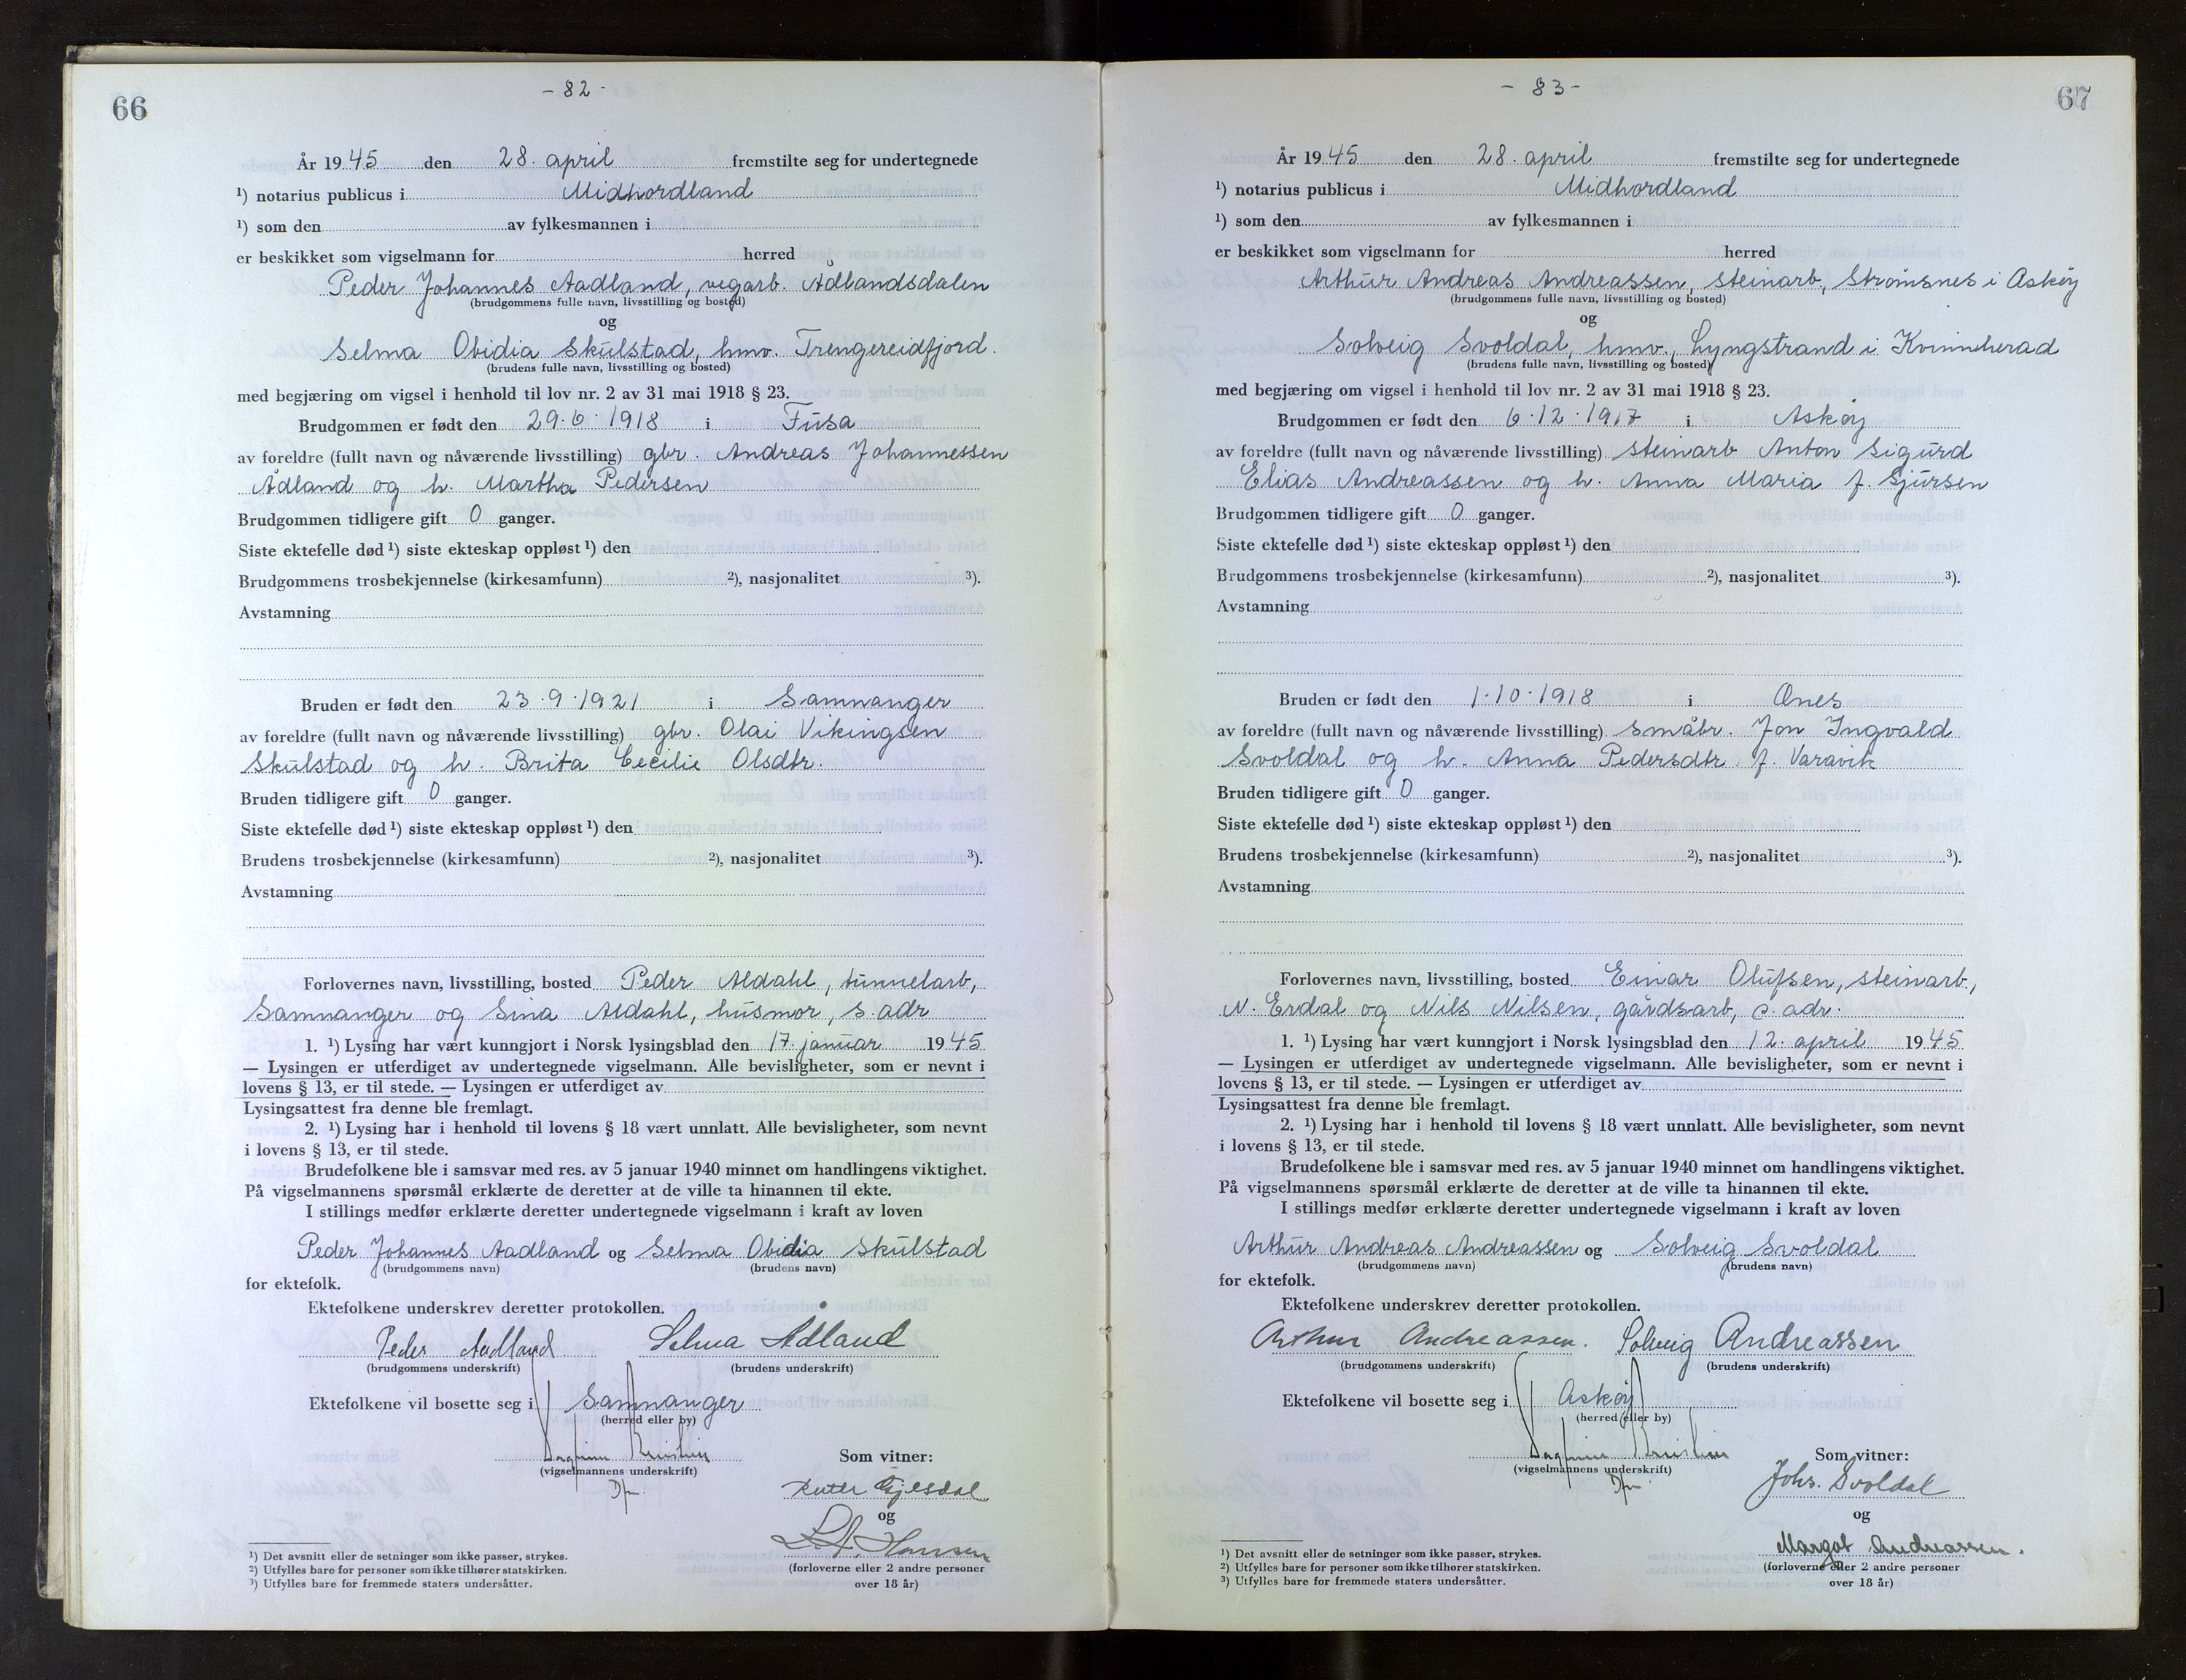 66
- 82 -
År 1945 den 28. april fremstilte seg for undertegnede
¹) notarius publicus i Midhordland
¹) som den av fylkesmannen i
er beskikket som vigselmann for herred
Peder Johannes Aadland, vegarb. Ådlandsdalen
(brudgommens fulle navn, livsstilling og bosted)
og
Selma Obidia Skulstad, hmv. Trengereidfjord.
(brudens fulle navn, livsstilling og bosted)
med begjæring om vigsel i henhold til lov nr. 2 av 31 mai 1918 § 23.
Brudgommen er født den 29.6.1918 i Fusa
av foreldre (fullt navn og nåværende livsstilling) gbr. Andreas Johannessen
Ådland og h. Martha Pedersen
Brudgommen tidligere gift 0 ganger.
Siste ektefelle død ¹) siste ekteskap oppløst ¹) den
Brudgommens trosbekjennelse (kirkesamfunn) ²), nasjonalitet ³).
Avstamning
Bruden er født den 23.9.1921 i Samnanger
av foreldre (fullt navn og nåværende livsstilling) gbr. Olai Vikingsen
Skulstad og h. Brita Cecilie Olsdtr.
Bruden tidligere gift 0 ganger.
Siste ektefelle død ¹) siste ekteskap oppløst ¹) den
Brudens trosbekjennelse (kirkesamfunn) ²), nasjonalitet ³).
Avstamning
Forlovernes navn, livsstilling, bosted Peder Aldahl, tunnelarb,
Samnanger og Sina Aldahl, husmor, s. adr
1. ¹) Lysing har vært kunngjort i Norsk lysingsblad den 17. januar 1945
— Lysingen er utferdiget av undertegnede vigselmann. Alle bevisligheter, som er nevnt i
lovens § 13, er til stede. — Lysingen er utferdiget av
Lysingsattest fra denne ble fremlagt.
2. ¹) Lysing har i henhold til lovens § 18 vært unnlatt. Alle bevisligheter, som nevnt
i lovens § 13, er til stede.
Brudefolkene ble i samsvar med res. av 5 januar 1940 minnet om handlingens viktighet.
På vigselmannens spørsmål erklærte de deretter at de ville ta hinannen til ekte.
I stillings medfør erklærte deretter undertegnede vigselmann i kraft av loven
Peder Johannes Aadland og Selma Obidia Skulstad
(brudgommens navn) (brudens navn)
for ektefolk.
Ektefolkene underskrev deretter protokollen.
Peder Aadland Selma Ådland
(brudgommens underskrift) (brudens underskrift)
Ektefolkene vil bosette seg i Samnanger
(herred eller by)
Som vitner:
(vigselmannens underskrift)
Dfm.
Gjesdal
og
Hansen
(forloverne eller 2 andre personer
over 18 år)
¹) Det avsnitt eller de setninger som ikke passer, strykes.
²) Utfylles bare for personer som ikke tilhører statskirken.
³) Utfylles bare for fremmede staters undersåtter.
67
- 83 -
År 1945 den 28. april fremstilte seg for undertegnede
¹) notarius publicus i Midhordland
¹) som den av fylkesmannen i
er beskikket som vigselmann for herred
Arthur Andreas Andreassen, steinarb., Strømsnes i Askøy
(brudgommens fulle navn, livsstilling og bosted)
og
Solveig Svoldal, hmv., Lyngstrand i Kvinnherad
(brudens fulle navn, livsstilling og bosted)
med begjæring om vigsel i henhold til lov nr. 2 av 31 mai 1918 § 23.
Brudgommen er født den 6.12.1917 i Askøy
av foreldre (fullt navn og nåværende livsstilling) steinarb Anton Sigurd
Elias Andreassen og h. Anna Maria f. Sjursen
Brudgommen tidligere gift 0 ganger.
Siste ektefelle død ¹) siste ekteskap oppløst ¹) den
Brudgommens trosbekjennelse (kirkesamfunn) ²), nasjonalitet ³).
Avstamning
Bruden er født den 1.10.1918 i Ænes
av foreldre (fullt navn og nåværende livsstilling) småbr. Jon Ingvald
Svoldal og h. Anna Pedersdtr. f. Varavik
Bruden tidligere gift 0 ganger.
Siste ektefelle død ¹) siste ekteskap oppløst ¹) den
Brudens trosbekjennelse (kirkesamfunn) ²), nasjonalitet ³).
Avstamning
Forlovernes navn, livsstilling, bosted Einar Olufsen, steinarb.,
N. Erdal og Nils Nilsen, gårdsarb, s. adr.
1. ¹) Lysing har vært kunngjort i Norsk lysingsblad den 12. april 1945
— Lysingen er utferdiget av undertegnede vigselmann. Alle bevisligheter, som er nevnt i
lovens § 13, er til stede. — Lysingen er utferdiget av
Lysingsattest fra denne ble fremlagt.
2. ¹) Lysing har i henhold til lovens § 18 vært unnlatt. Alle bevisligheter, som nevnt
i lovens § 13, er til stede.
Brudefolkene ble i samsvar med res. av 5 januar 1940 minnet om handlingens viktighet.
På vigselmannens spørsmål erklærte de deretter at de ville ta hinannen til ekte.
I stillings medfør erklærte deretter undertegnede vigselmann i kraft av loven
Arthur Andreas Andreassen og Solveig Svoldal
(brudgommens navn) (brudens navn)
for ektefolk.
Ektefolkene underskrev deretter protokollen.
Arthur Andreassen. Solveig Andreassen
(brudgommens underskrift) (brudens underskrift)
Ektefolkene vil bosette seg i Askøy
(herred eller by)
Som vitner:
(vigselmannens underskrift)
Dfm
Johs. Svoldal
og
Margot Andreassen.
(forloverne eller 2 andre personer
over 18 år)
¹) Det avsnitt eller de setninger som ikke passer, strykes.
²) Utfylles bare for personer som ikke tilhører statskirken.
³) Utfylles bare for fremmede staters undersåtter.